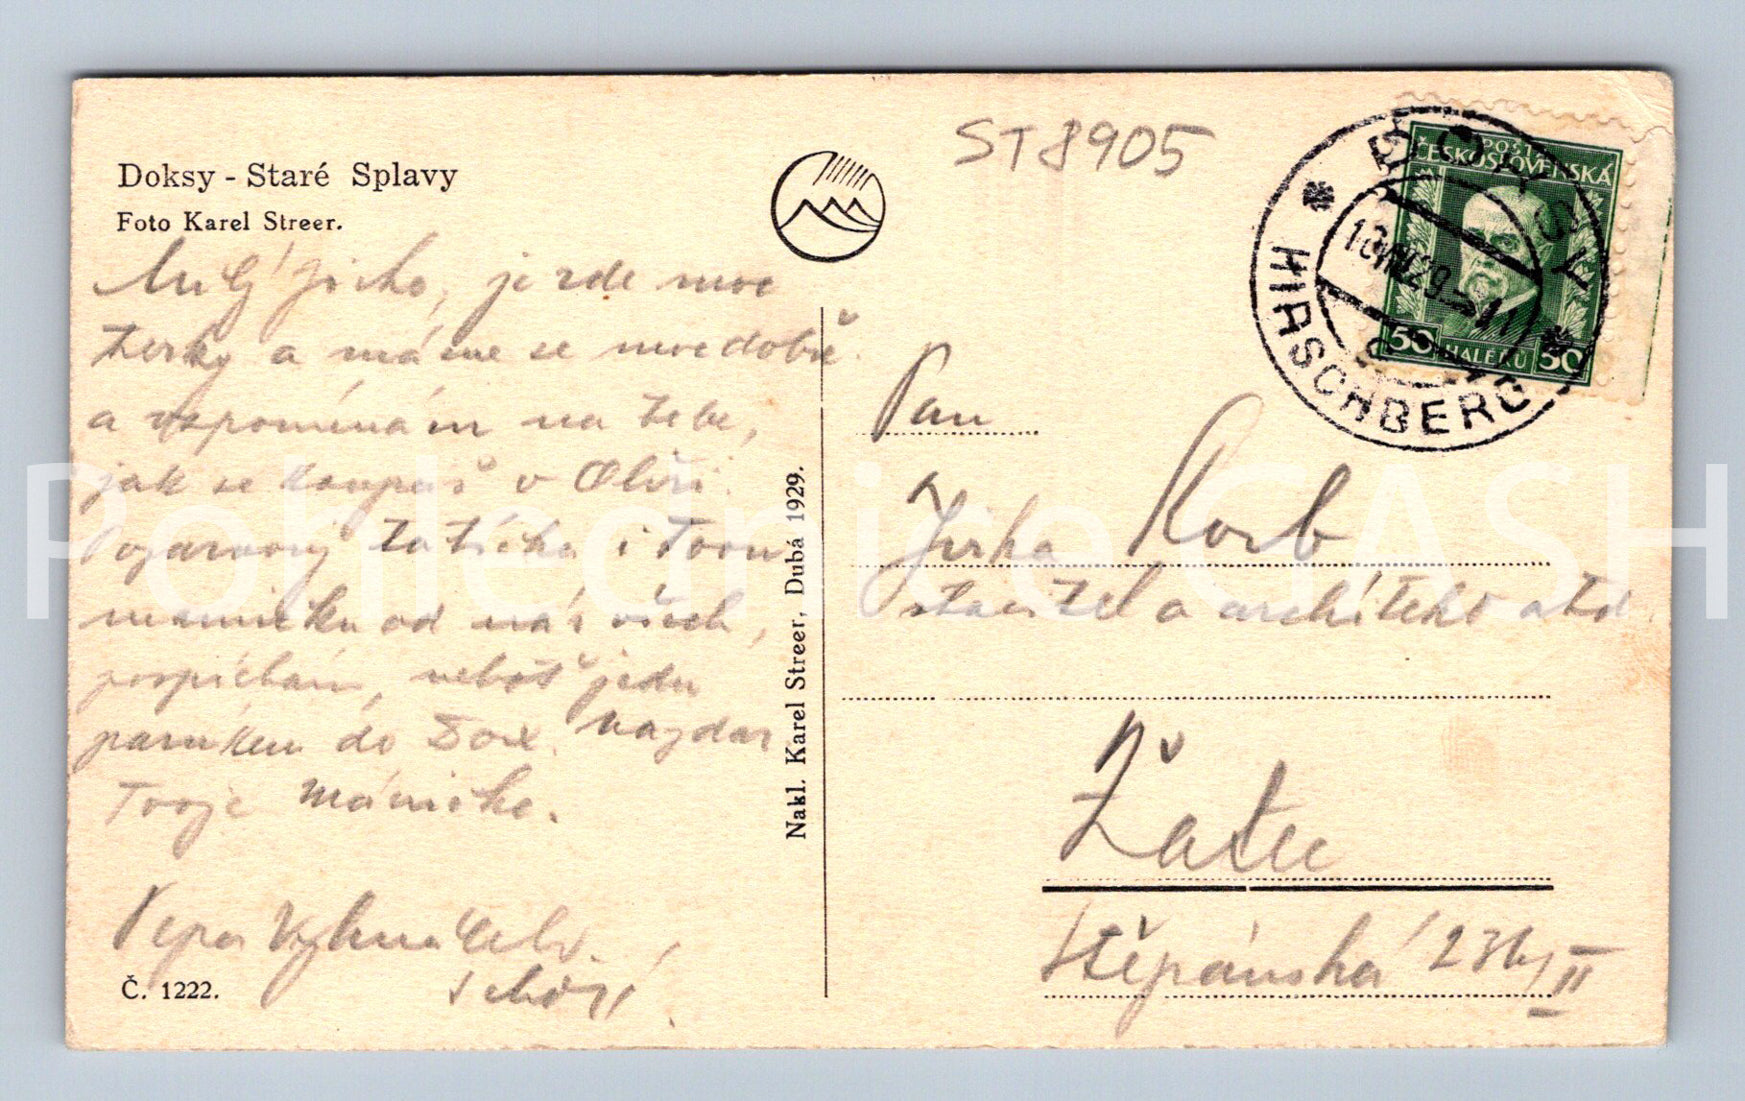 Doksy - Staré Splavy
Foto Karel Streer.
ST 8905
POŠTA
ČESKOSLOVENSKÁ
50 HALÉŘŮ 50
DOKSY
HIRSCHBERG
29
Milý Jirko, je zde moc
hezky a máme se moc dobře.
a vzpomínám na tebe,
jak se koupeš v Ohři.
Pozdravuj tatíčka i Tvou
maminku od nás všech,
pospíchám, neboť jedu
parníkem do Dox. Nazdar
Tvoje
Pepa
Č. 1222.
Nakl. Karel Streer, Dubá 1929.
Pan
Jirka Korb
stavitel a architekt atd.
Žatec
Štěpánská II
Pohlednice GASH